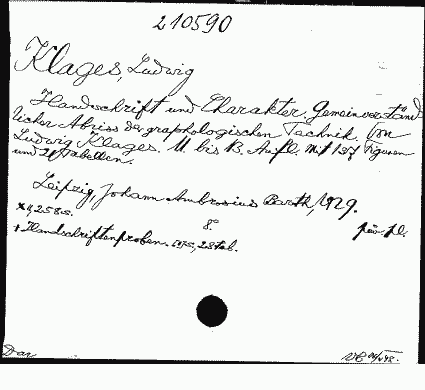 210590
Klages, Ludwig
Handschrift und Charakter. Gemeinverständ
licher Abriss der graphologischen Technik. Von
Ludwig Klages. 11. bis 13. Aufl. Mit 137 Figuren
und 21 Tabellen.
Leipzig, Johann Ambrosius Barth, 1929.
X, 258 S. 8°.
+ Handschriftenproben.